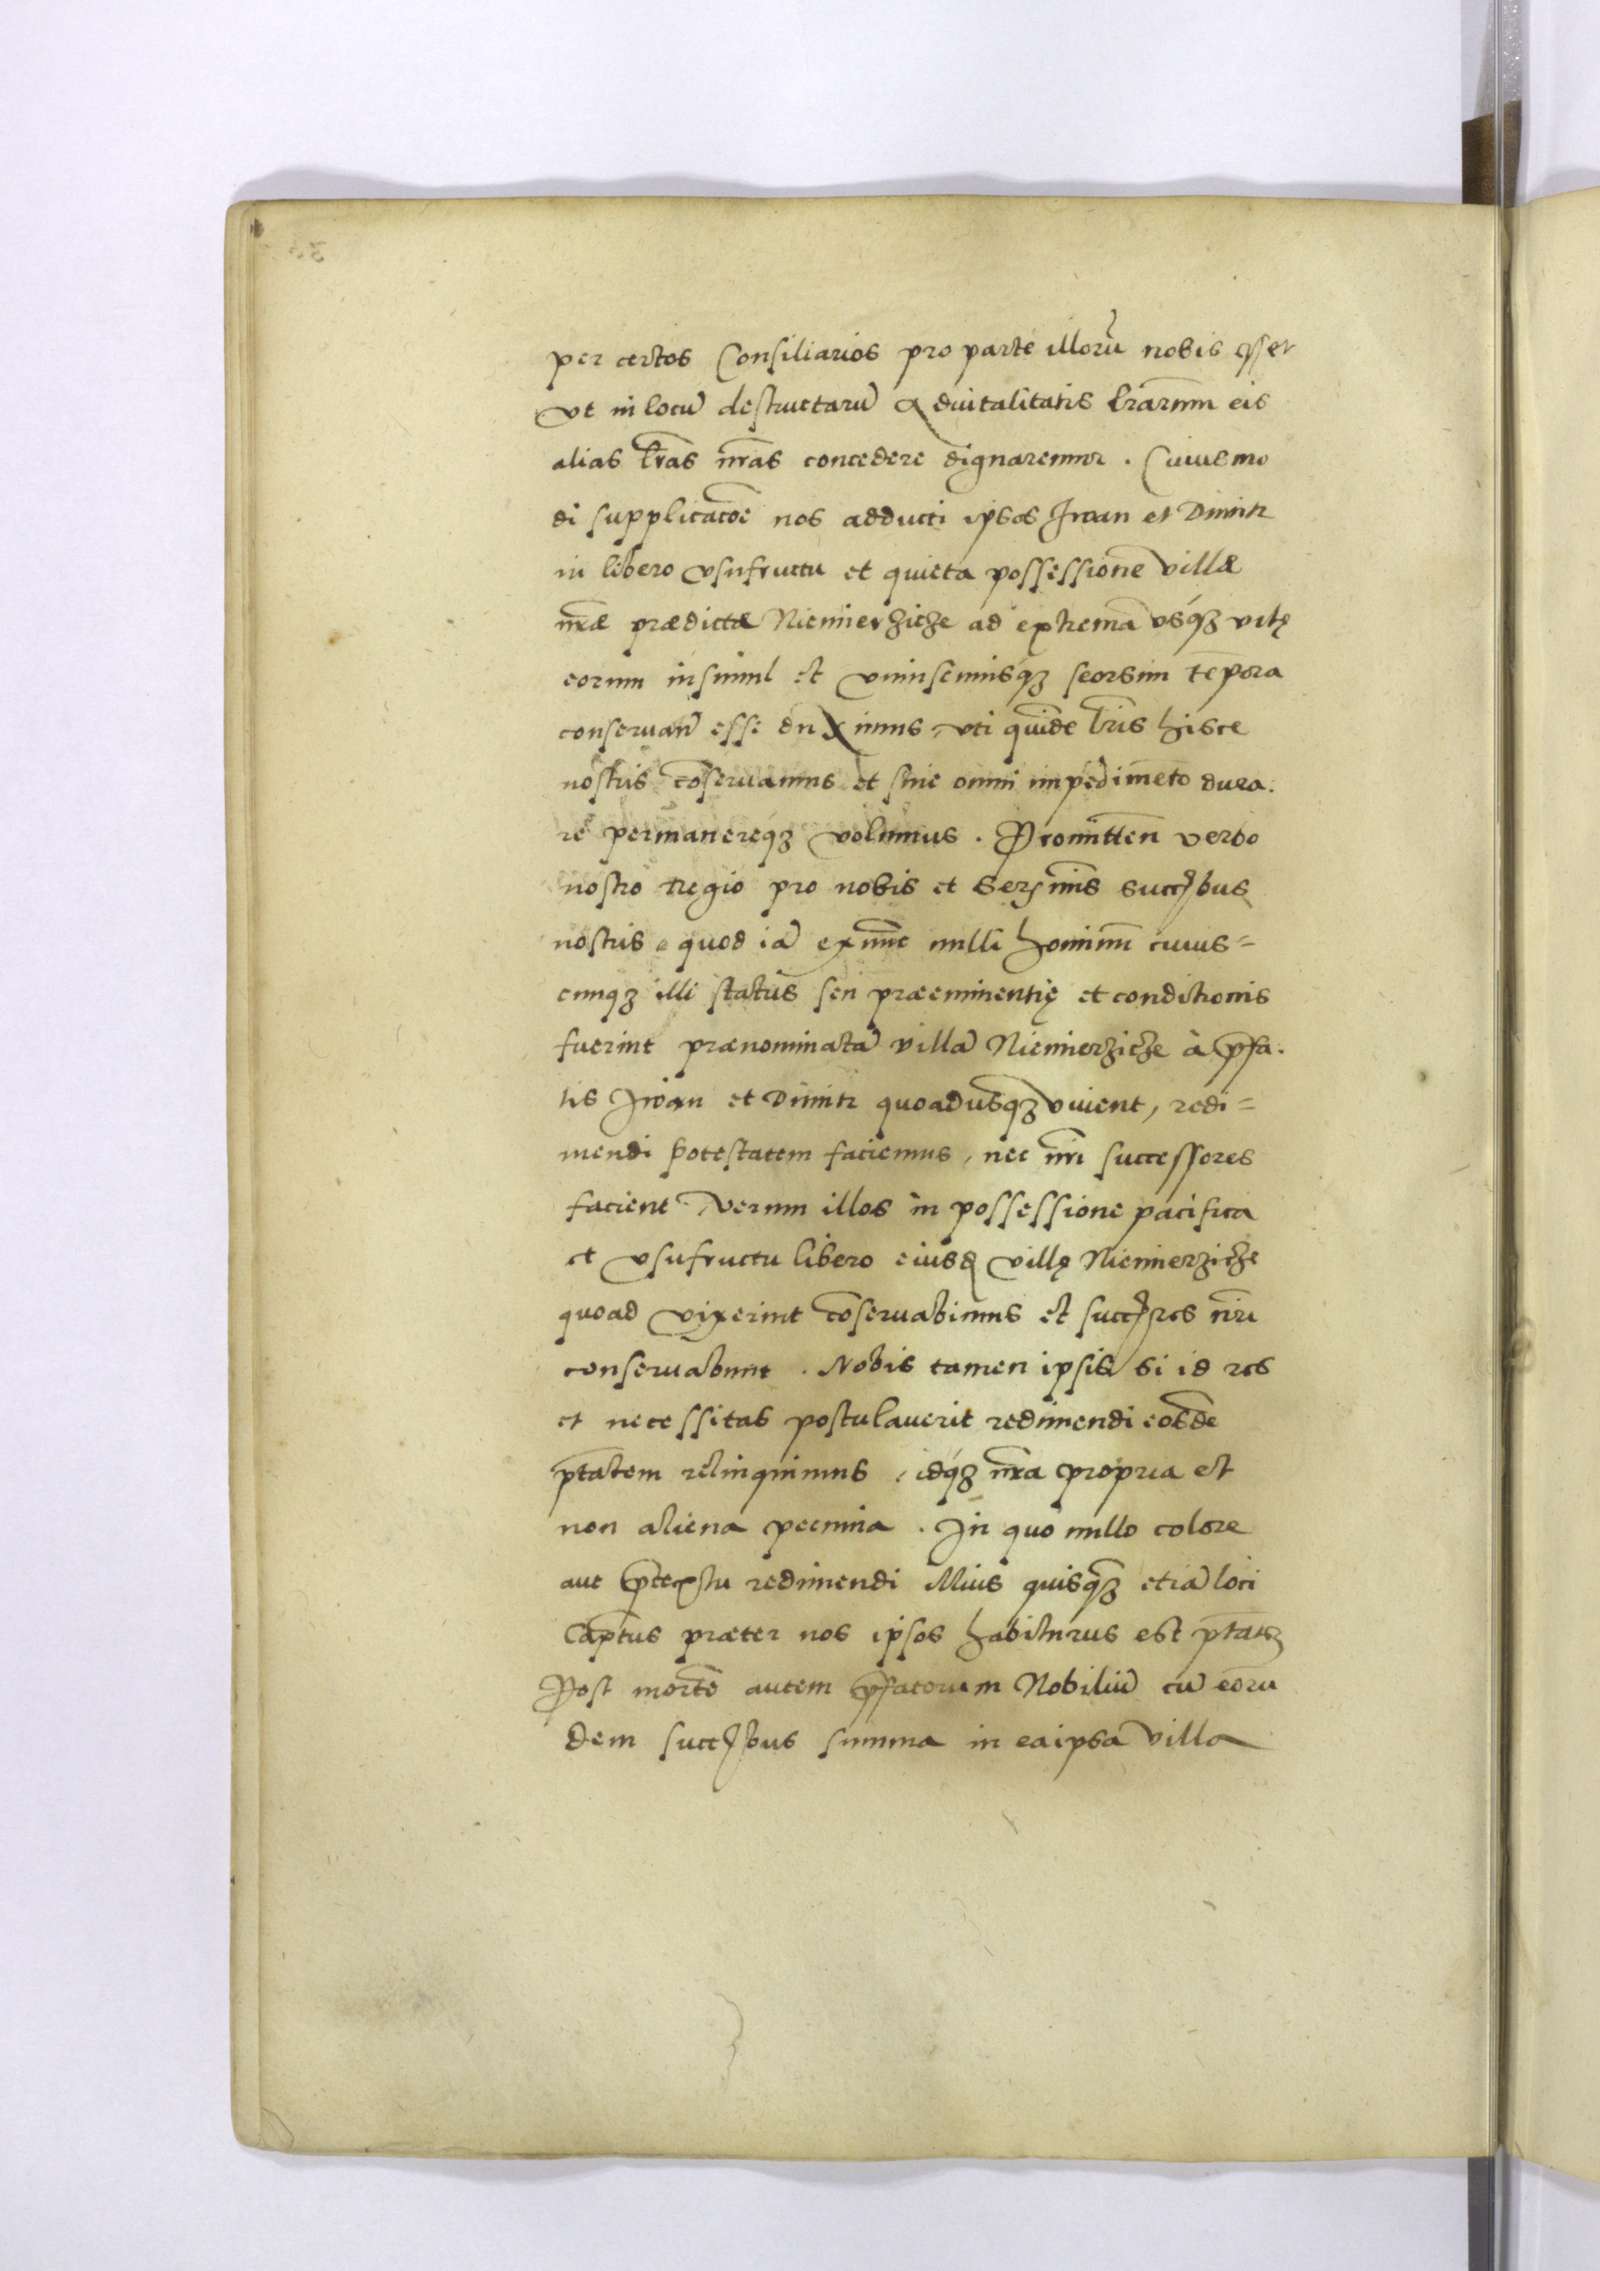 per certos Consiliarios pro parte illorū nobis esset
vt in locū destructarū advitalitatis lrārum eis
alias lrās nrās concedere dignaremur . Cuiusmo
di supplicatoē nos adducti ipsos Iwan et Dimitr
in libero vsufructu et quieta possessione villæ
nræ prædictæ Niemierzicze ad extremā vsq́ꝫ vitę
eorum insimul et vniuscuiusq́ꝫ seorsim tēpora
conservan̄ esse duximus, vti quidē lrīs hisce
nostris cōservamus et sine omni impedimēto dura
re permanereq́ꝫ volumus . Promitten̄ verbo
nostro regio pro nobis et Serĩmis succ̃bus
nostris, quod iā ex nunc nulli hominū cuius=
cunqꝫ illi status seu præeminentię et conditionis
fuerint prænominatā villā Niemierzicze à p̄fa
tis Iwan et Dimitr quoadusqꝫ vivent, redi=
mendi potestatem faciemus, nec nr̄i successores
facient. Verum illos in possessione pacifica
et vsufructu libero eiusd villę Niemierzicze
quoad vixerint cōservabimus et succ̃res nr̄i
conservabunt . Nobis tamen ipsis si id res
et necessitas postulaverit redimendi eosdē
ptātem relinquimus, idq́ꝫ nr̄a propria et
non aliena pecunia . In quo nullo colore
aut p̄textu redimendi illius quisq̄ꝫ etiā loci
Capt̄us præter nos ipsos habiturus est ptāteꝫ
Post mortē autem p̄fatorum Nobiliū cū eoru
dem succ̃bus summa in ea ipsa villa